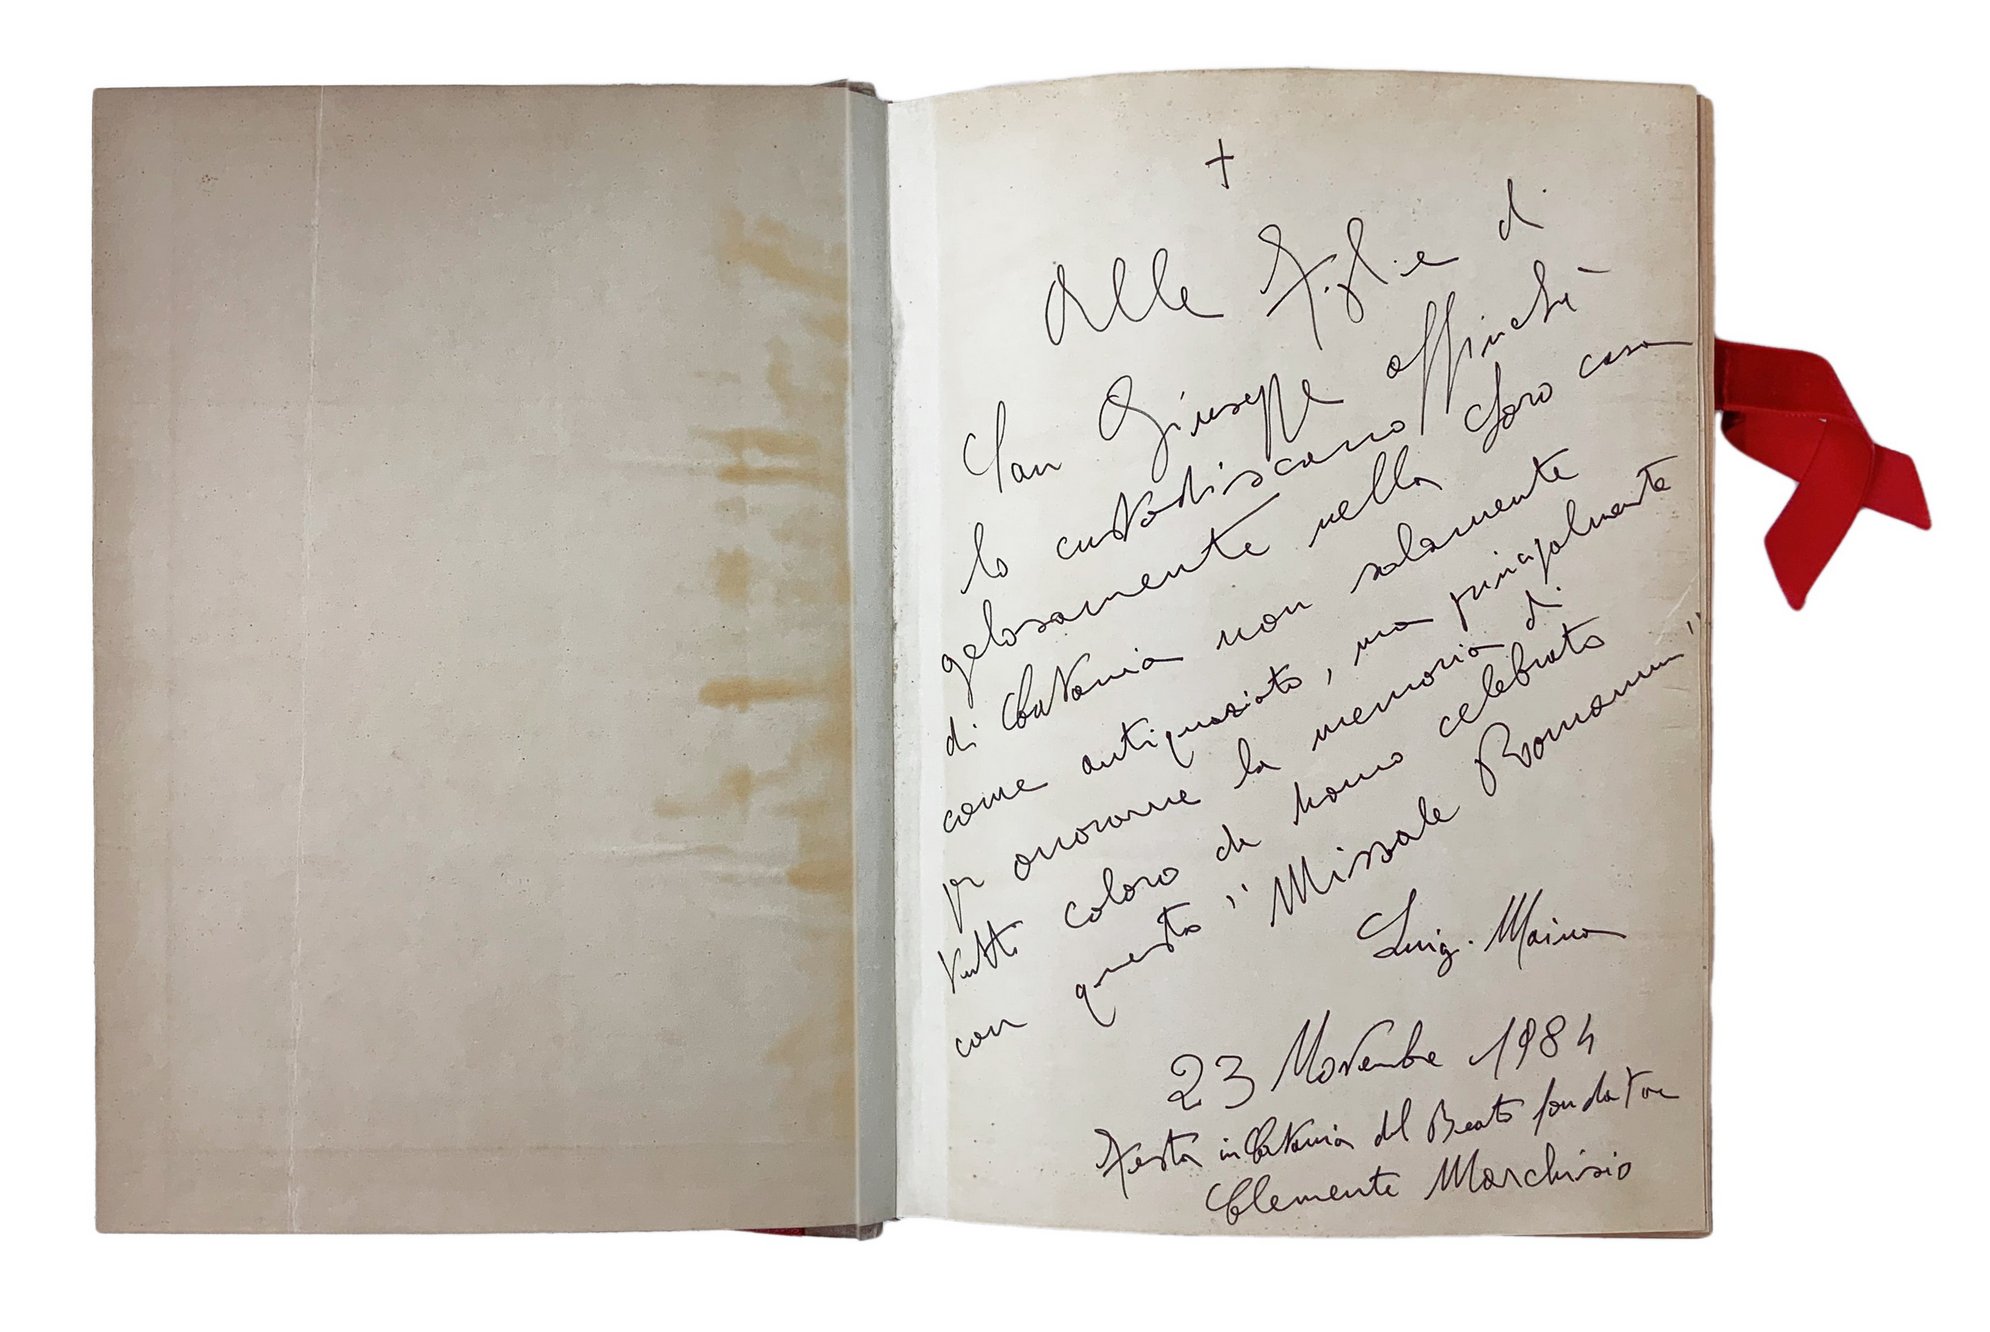 +
Alle Figlie di
San Giuseppe affinché
lo custodiscano
gelosamente nella loro casa
di Catania non solamente
come antiquariato, ma principalmente
pr onorarne la memoria di
tutti coloro che hanno celebrato
con questo "Missale Romanum"
Luigi Maina
23 Novembre 1984
Festa in Catania del Beato fondatore
Clemente Marchisio